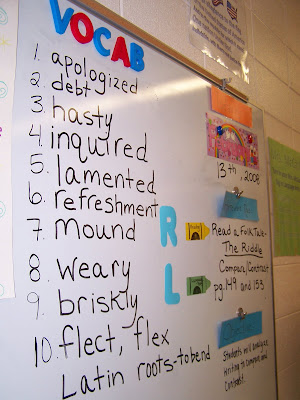 VOCAB
1. apologized
2. debt
3. hasty
4. inquired
5. lamented
6. refreshment
7. mound
8. weary
9. briskly
10. flect, flex
Latin roots-to bend
13th, 2008
R
Read a Folk Tale-
The Riddle
L
Compare/Contrast
pg. 149 and 153
Students will analyze
writing to compare and
contrast.